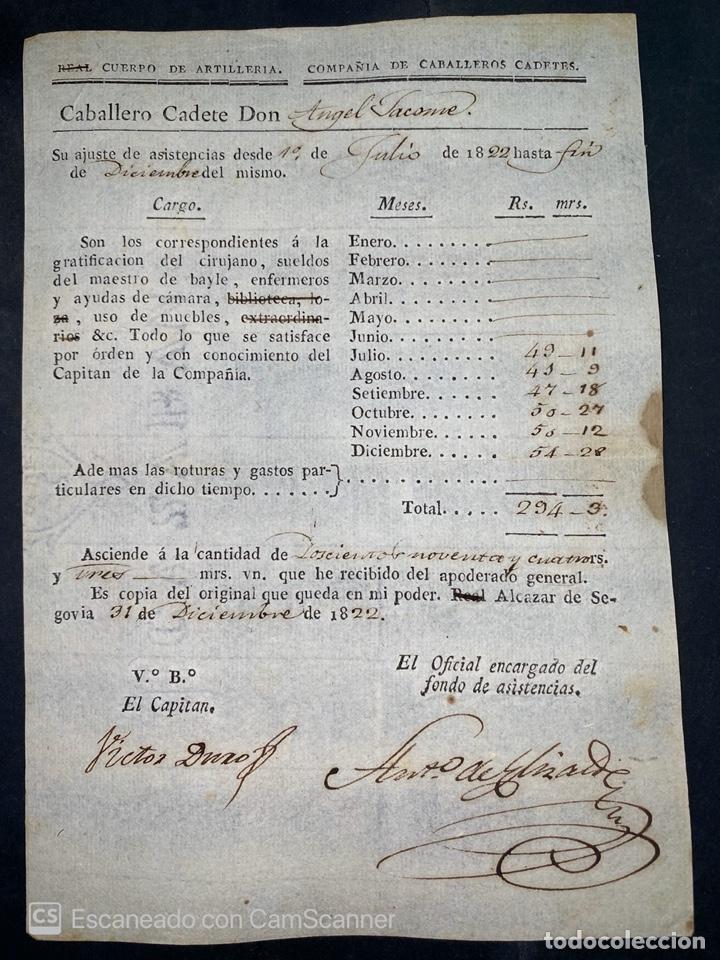 REAL CUERPO DE ARTILLERIA. COMPAÑIA DE CABALLEROS CADETES.
Caballero Cadete Don Angel Jacome.
Su ajuste de asistencias desde 1º, de Julio de 1822 hasta fin
de Diciembre del mismo.
Cargo. Meses. Rs. mrs.
Son los correspondientes á la
gratificacion del cirujano, sueldos
del maestro de bayle, enfermeros
y ayudas de cámara, biblioteca, lo-
za, uso de muebles, extraordina-
rios &c. Todo lo que se satisface
por órden y con conocimiento del
Capitan de la Compañía.
Enero........
Febrero.......
Marzo........
Abril.........
Mayo........
Junio.........
Julio......... 49-11
Agosto........ 41-9
Setiembre...... 47-18
Octubre....... 50-27
Noviembre..... 50-12
Diciembre...... 54-28
Ade mas las roturas y gastos par-
ticulares en dicho tiempo.......}
Total..... 294-3.
Asciende á la cantidad de Doscientos noventa y cuatro rs.
y tres mrs. vn. que he recibido del apoderado general.
Es copia del original que queda en mi poder. Real Alcazar de Se-
govia 31 de Diciembre de 1822.
V.º B.º
El Capitan,
El Oficial encargado del
fondo de asistencias,
Victor Duro
Anto. de
CS Escaneado con CamScanner
todocoleccion